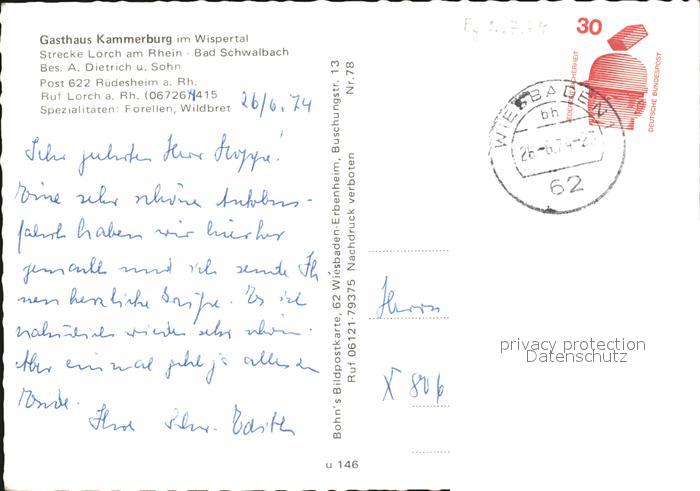 Gasthaus Kammerburg im Wispertal
Strecke Lorch am Rhein - Bad Schwalbach
Bes. A. Dietrich u. Sohn
Post 622 Rüdesheim a. Rh.
Ruf Lorch a. Rh. (06726) 415
Spezialitäten: Forellen, Wildbret
26/6.74
Sehr geehrter Herr Hoppe!
Eine sehr schöne Autobus-
fahrt haben wir hierher
gemacht und ich sende Ih
nen herzliche Grüße. Es ist
wieder sehr schön.
Aber einmal geht ja alles zu
Ende.
Ihre Schw. Edith
Bohn's Bildpostkarte, 62 Wiesbaden-Erbenheim, Buschungstr. 13
Ruf 06121-79375 Nachdruck verboten Nr. 78
u 146
30
DEUTSCHE BUNDESPOST
WIESBADEN
bh
26.-6.74-2
62
Herrn
X 806
privacy protection
Datenschutz